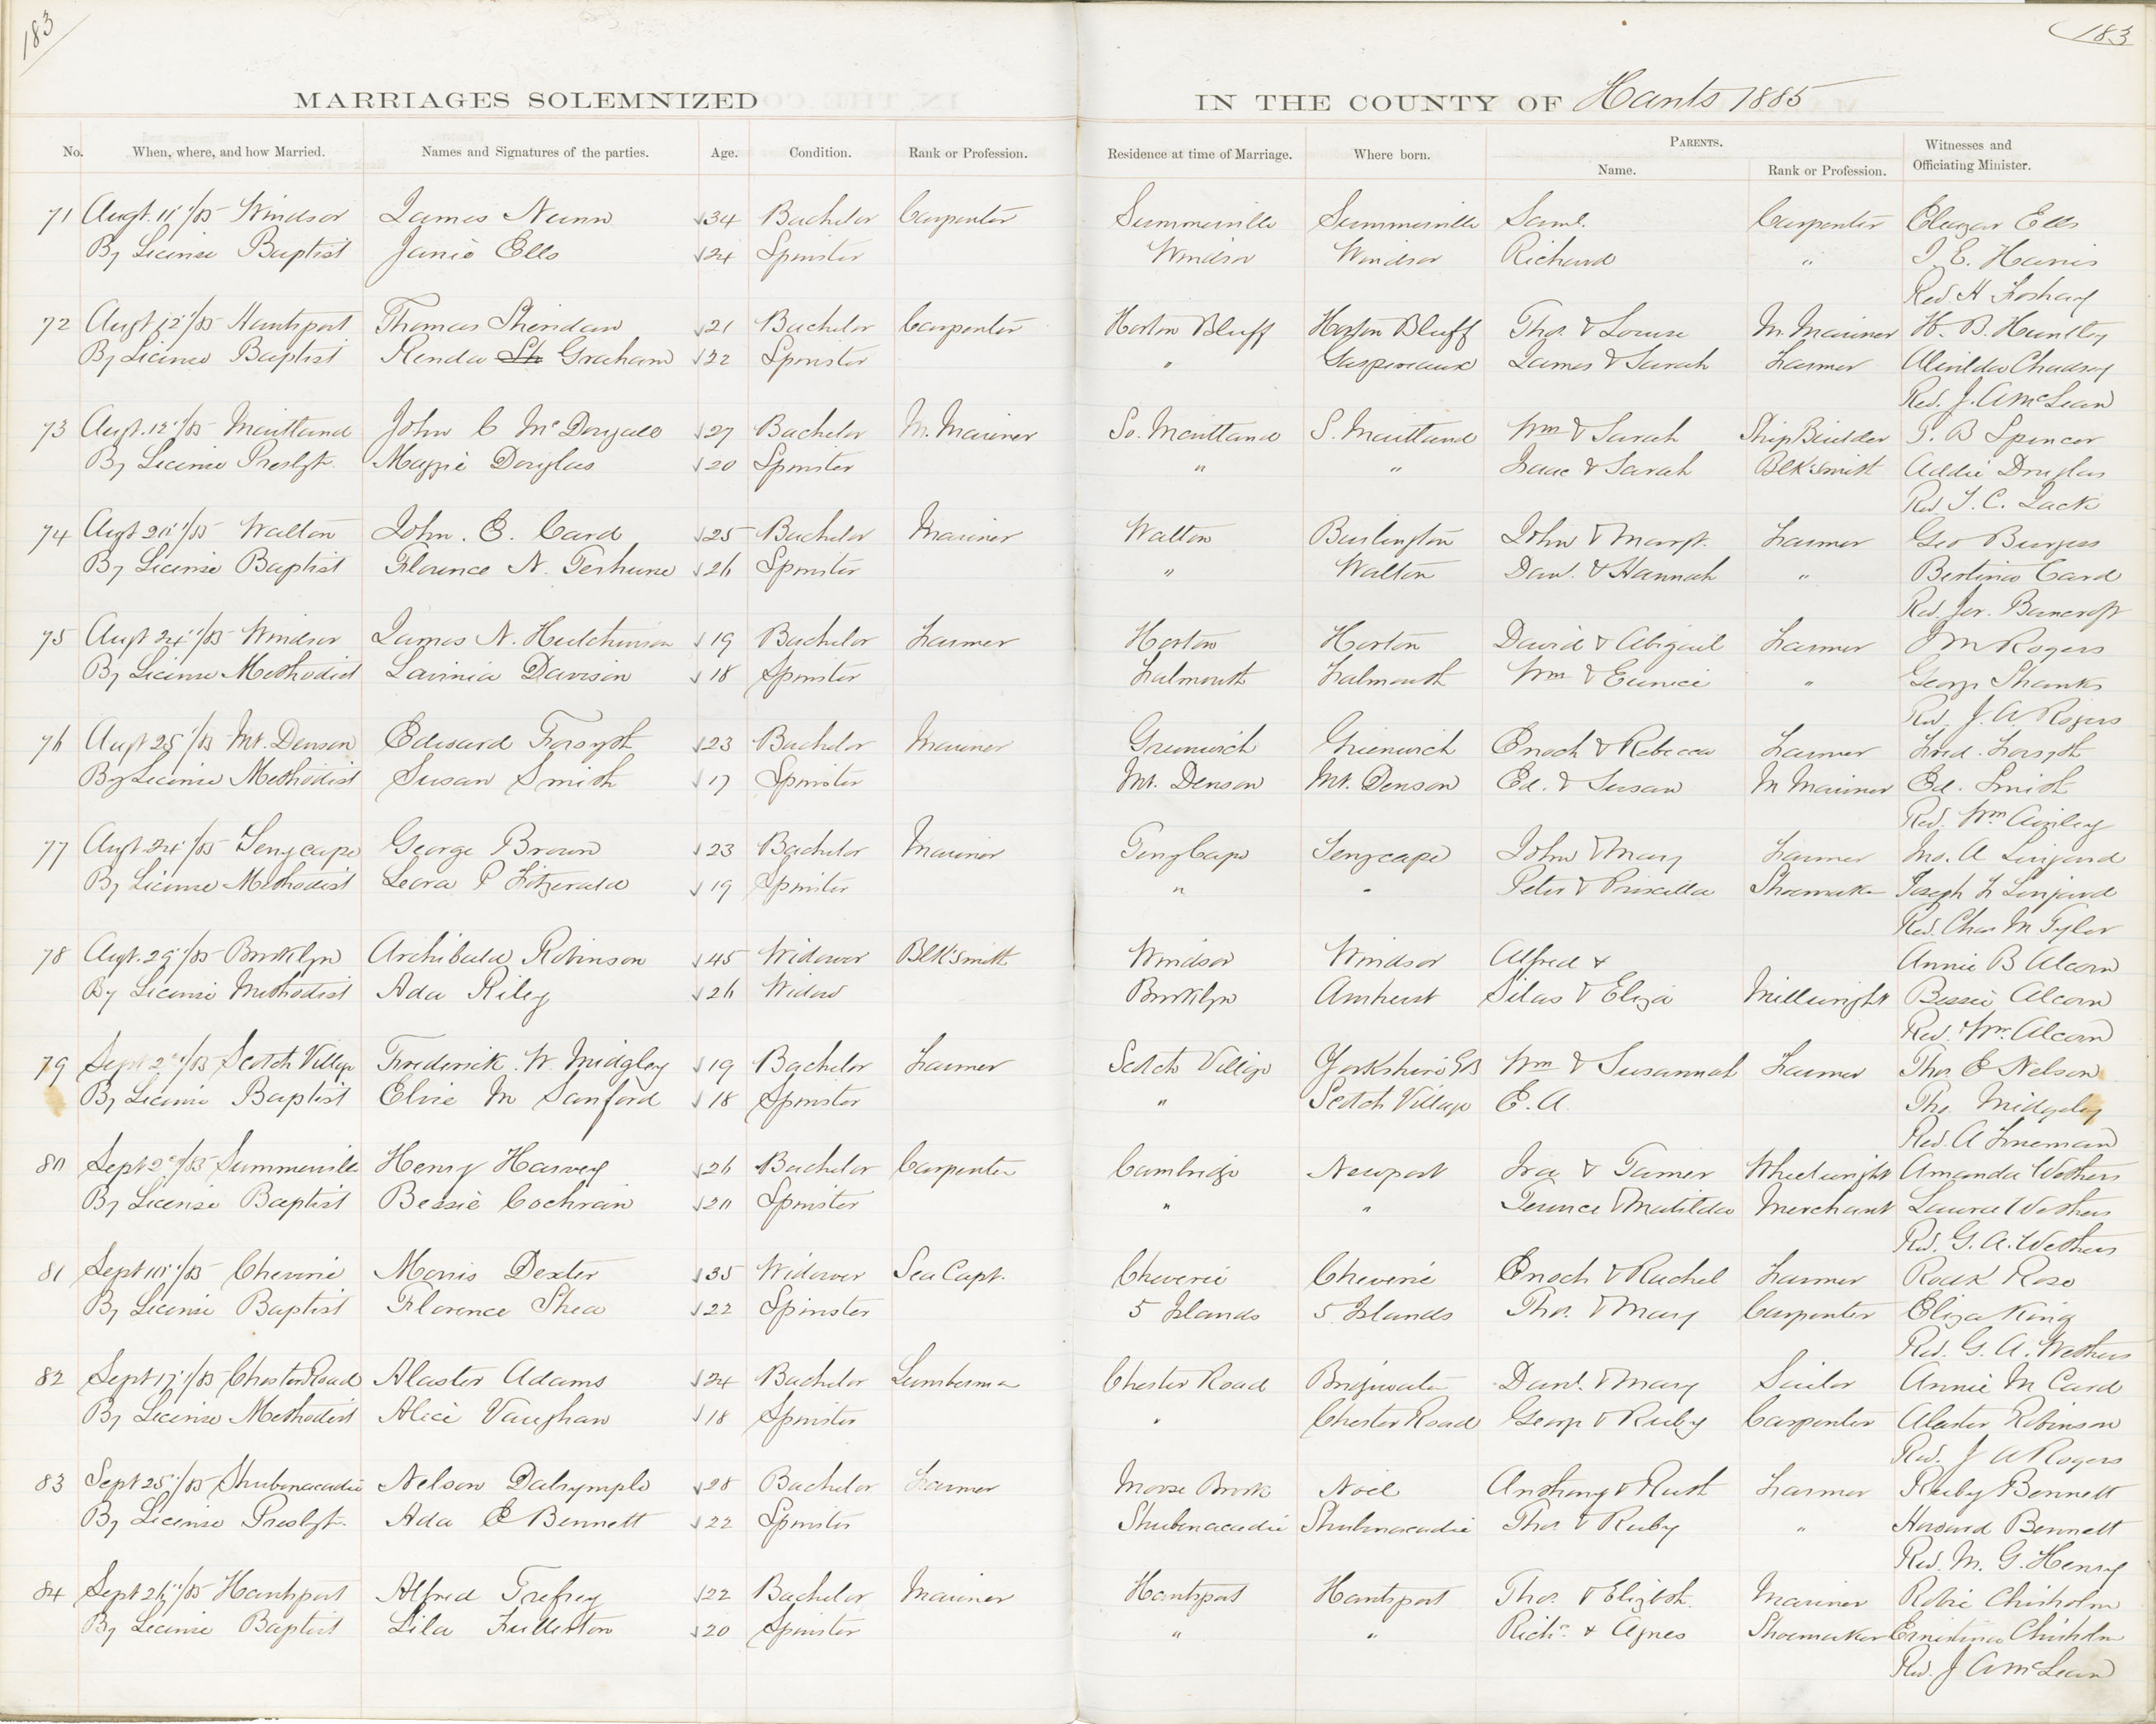 183
183
MARRIAGES SOLEMNIZED IN THE COUNTY OF Hants 1885
Parents.
No. When, where, and how Married. Names and Signatures of the parties. Age. Condition. Rank or Profession. Residence at time of Marriage. Where born. Name. Rank or Profession. Witnesses and Officiating Minister.
71 Augt. 11"/85 Windsor James Nunn 34 Bachelor Carpenter Summerville Summerville Saml. Carpenter Eleazar Ells
By License Baptist Janie Ells 24 Spinster Windsor Windsor Richard " J. E. Harris
Rev. H Foshay
72 Augt 12"/85 Hantsport Thomas Sheridan 21 Bachelor Carpenter Horton Bluff Horton Bluff Thos. & Louise M. Mariner W. B. Huntley
By License Baptist Renda Graham 22 Spinster " Gaspereaux James & Sarah Farmer
Rev. J. A McLean
73 Augt. 12"/85 Maitland John C McDougall 27 Bachelor M. Mariner So. Maitland S. Maitland Wm & Sarah Ship Builder T. B Spencer
By License Presbyt. Maggie Douglas 20 Spinster " " Isaac & Sarah Blk Smith Addie Douglas
Rev T. C. Jack
74 Augt 20"/85 Walton John. E. Card 25 Bachelor Mariner Walton Burlington John & Margt. Farmer Geo Burgess
By License Baptist Florence N. Terhune 26 Spinster " Walton Danl. & Hannah " Card
Rev Jer. Bancroft
75 Augt 24"/85 Windsor James N. Hutchinson 19 Bachelor Farmer Horton Horton David & Abigail Farmer J M Rogers
By License Methodist Lavinia Davison 18 Spinster Falmouth Falmouth Wm & Eunice " George Shanks
Rev. J. A Rogers
76 Augt 25"/85 Mt. Denson Edward Forsyth 23 Bachelor Mariner Greenwich Greenwich Enoch & Rebecca Farmer Fred. Forsyth
By License Methodist Susan Smith 17 Spinster Mt. Denson Mt. Denson Ed. & Susan M Mariner Ed. Smith
Rev. Wm Ainley
77 Augt 24"/85 Tenycape George Brown 23 Bachelor Mariner Teny Cape Tenycape John & Mary Farmer Jno. A Linjard
By License Methodist Leora P Fitzerald 19 Spinster " " Peter & Priscilla Shoemaker Joseph F Linjard
Rev. Chas M Tyler
78 Augt. 29"/85 Brooklyn Archibald Robinson 45 Widower Blk Smith Windsor Windsor Alfred & Annie B Alcorn
By License Methodist Ada Riley 26 Widow Brooklyn Amherst Silas & Eliza Millwright Bessie Alcorn
Rev. Wm. Alcorn
79 Sept 2nd/85 Scotch Village Frederick. W. Midgley 19 Bachelor Farmer Scotch Village Yorkshire GB Wm & Susannah Farmer Thos E Nelson
By License Baptist Elsie M Sanford 18 Spinster " Scotch Village E. A. Thos Midgeley
Rev. A Freeman
80 Sept 2nd/85 Summerville Henry Harvey 26 Bachelor Carpenter Cambridge Newport Ira & Tamer Wheelwright Amanda Wethers
By License Baptist Bessie Cochran 20 Spinster " " Terence & Matilda Merchant Laura Wethers
Rev. G. A. Wethers
81 Sept 10"/85 Cheverie Morris Dexter 35 Widower Sea Capt. Cheverie Cheverie Enoch & Rachel Farmer Rose
By License Baptist Florence Shea 22 Spinster 5 Islands 5 Islands Thos. & Mary Carpenter Eliza King
Rev. G. A. Wethers
82 Sept 17"/85 Chester Road Alaster Adams 24 Bachelor Lumberman Chester Road Bridgwater Danl. & Mary Sailor Annie M Card
By License Methodist Alice Vaughan 18 Spinster " Chester Road George & Ruby Carpenter Alaster Robinson
Rev. J A Rogers
83 Sept 25"/85 Shubenacadie Nelson Dalrymple 28 Bachelor Farmer Moose Brook Noel Anthony & Ruth Farmer Ruby Bennett
By License Presbyt. Ada E Bennett 22 Spinster Shubenacadie Shubenacadie Thos & Ruby " Howard Bennett
Rev. M. G. Henry
84 Sept 26"/85 Hantsport Alfred Trefrey 22 Bachelor Mariner Hantsport Hantsport Thos. & Elizbth. Mariner Robie Chisholm
By License Baptist Lila Fullerton 20 Spinster " " Richd. & Agnes Shoemaker Ernestine Chisholm
Rev. J A McLean